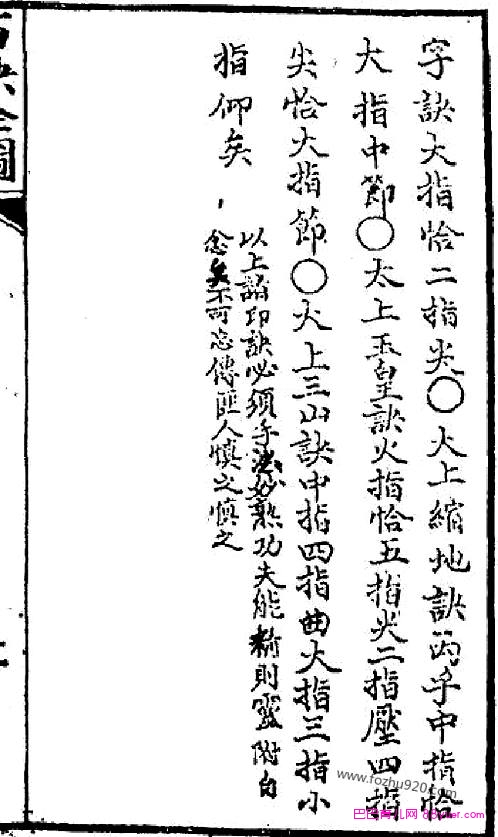 字訣大指恰二指尖〇大上縮地訣两手中指恰
大指中節〇太上玉皇訣大指恰五指尖二指壓四指
尖恰大指節〇大上三山訣中指四指曲大指三指小
指仰矣
以上諸印訣必須手法妙熟功夫能精則靈附自
念矣不可忘傳匪人慎之慎之
訣全圖
www.fozhu920.com
巴巴育儿网 88yuer.com